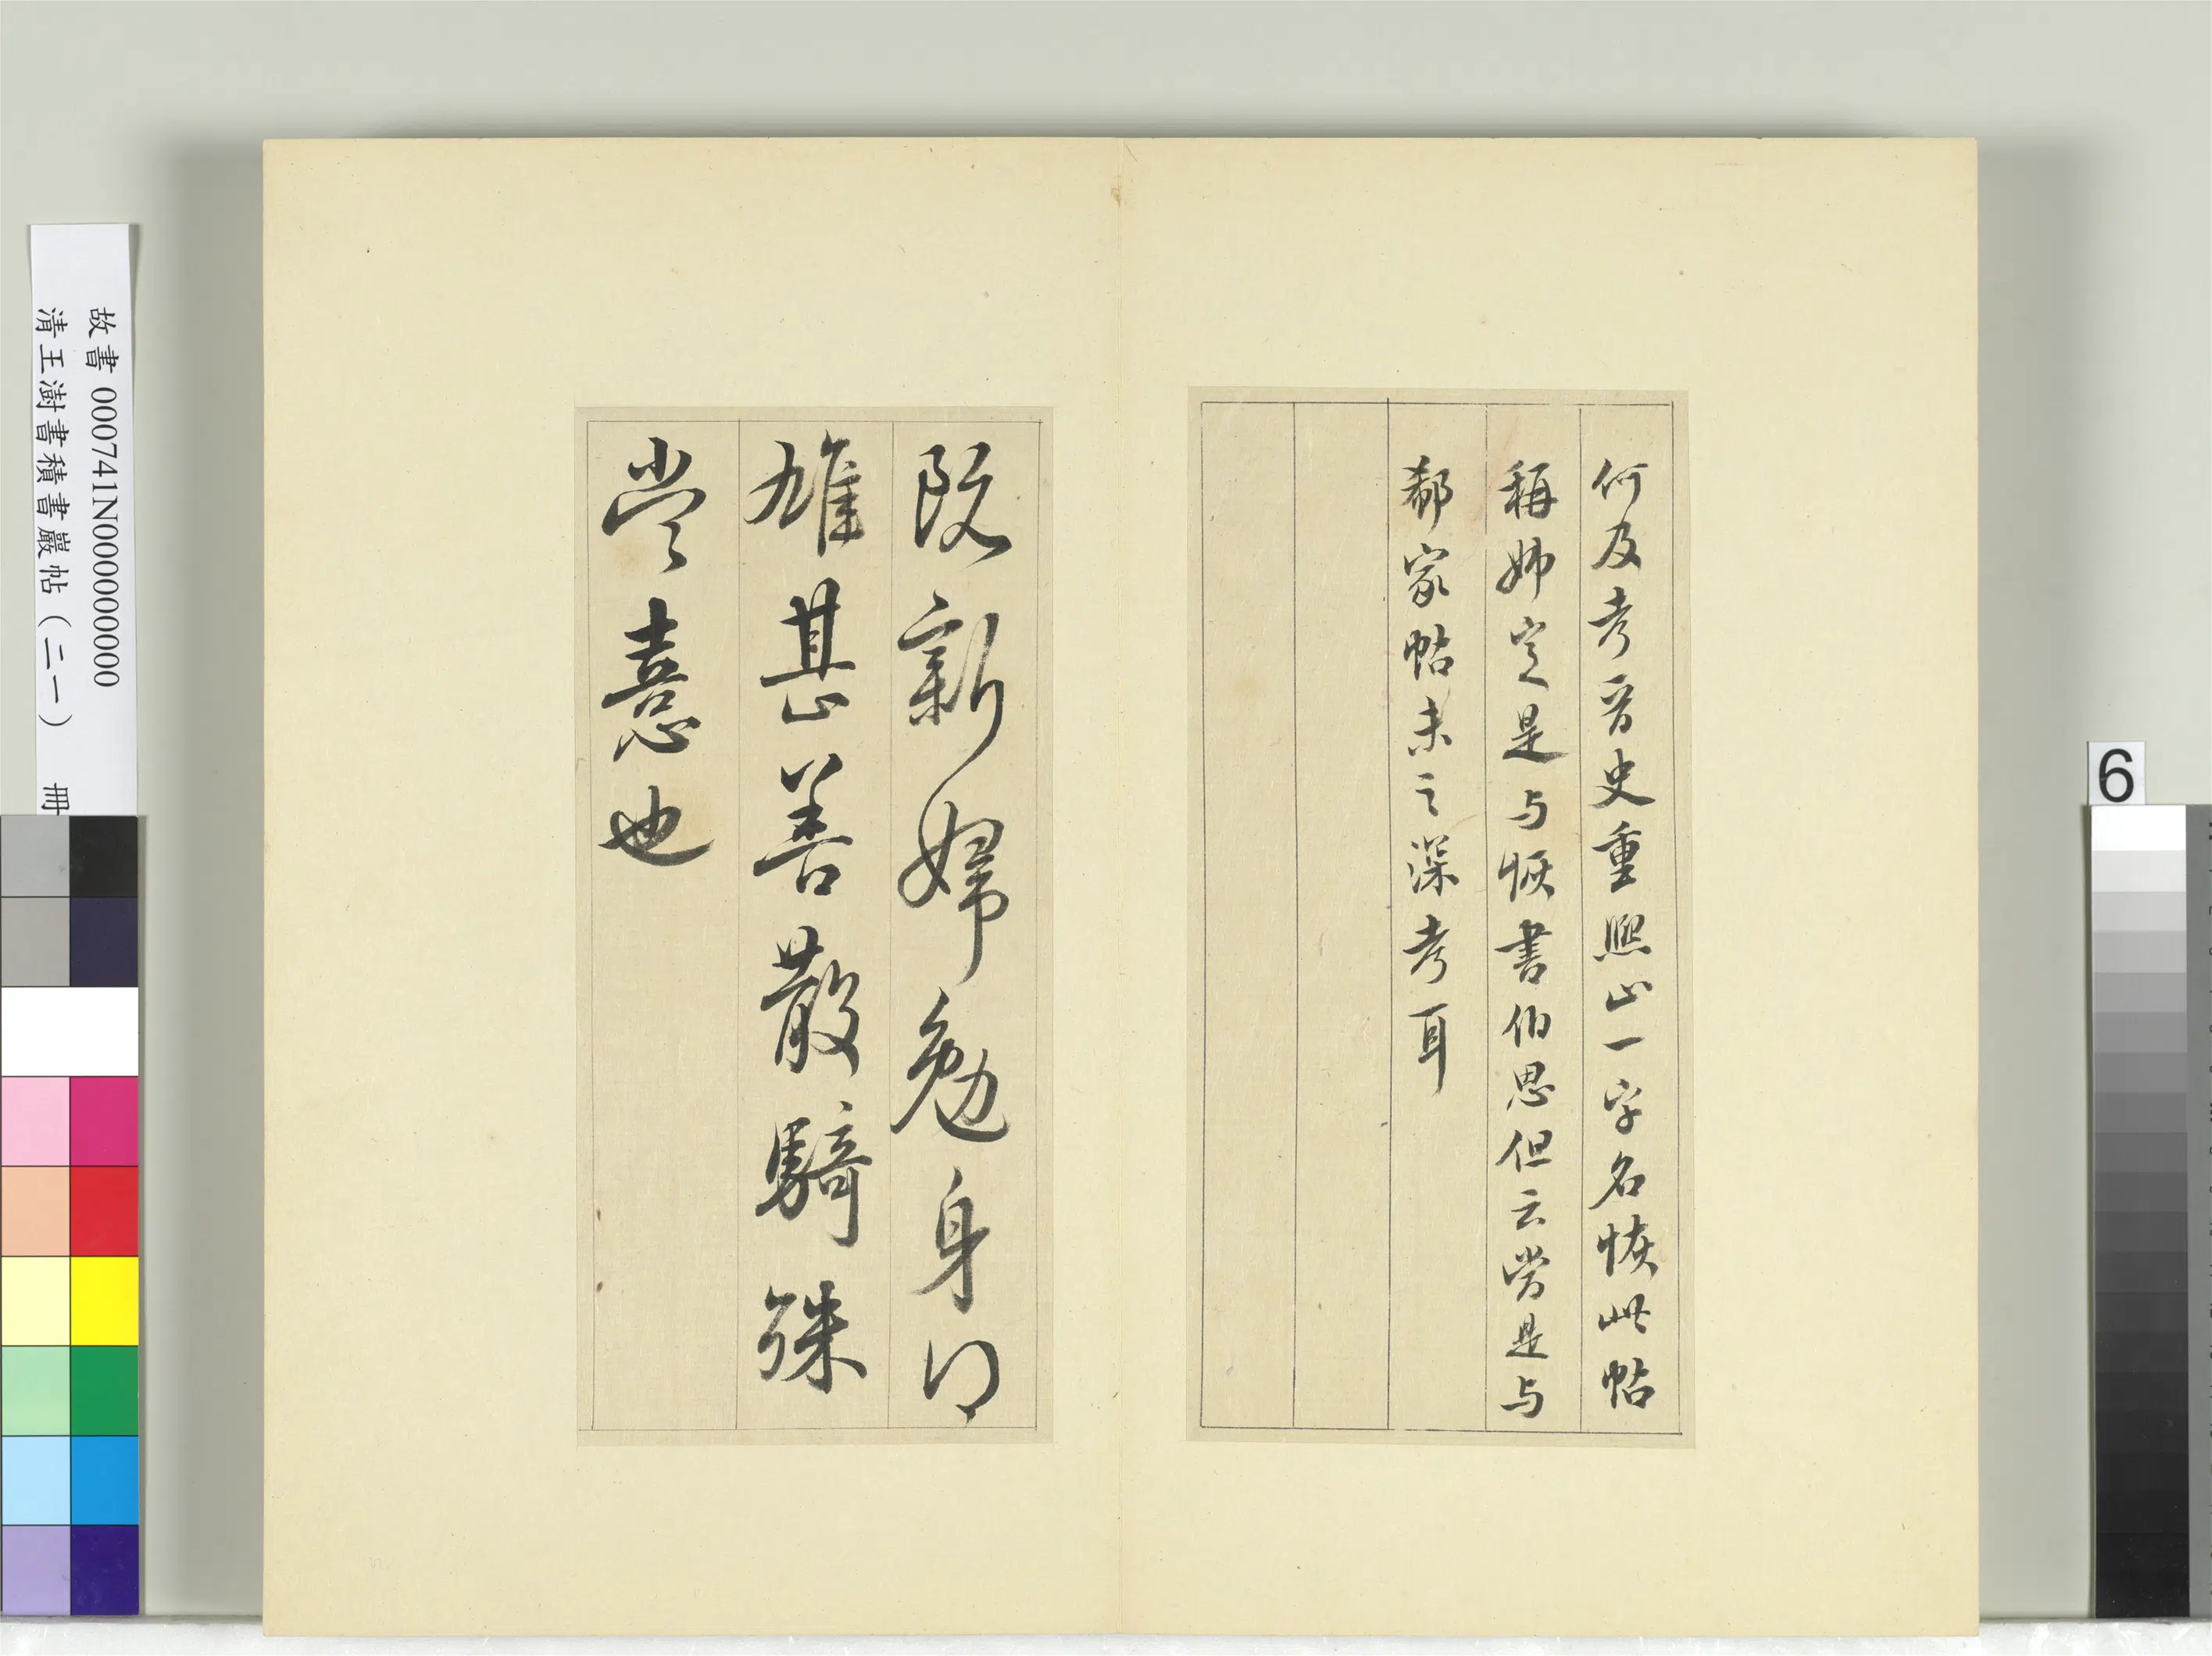 何及考晉史重熙止一字名恢此帖
稱姊定是与恢書伯思但云當是与
郗家帖未之深考耳
阮新婦勉身得
雄甚善散騎殊
當憙也
故書 000741N000000000
清王澍書積書巖帖（二一） 冊
6